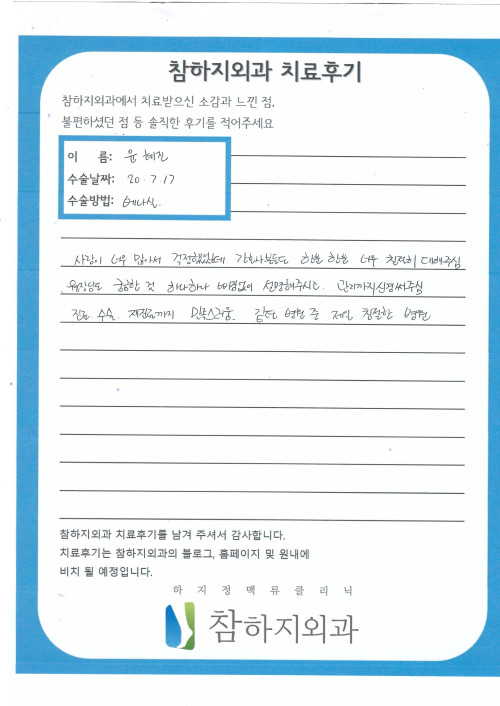 참하지외과 치료후기
참하지외과에서 치료받으신 소감과 느낀 점,
불편하셨던 점 등 솔직한 후기를 적어주세요
이 름: 윤혜진
수술날짜: 20.7.17
수술방법: 베나실
사람이 너무 많아서 걱정했었는데 간호사분들도 한분 한분 너무 친절히 대해주심
원장님도 궁금한 것 하나하나 빠짐없이 설명해주시고 관리까지 신경써주심
진료 수술 재진료까지 만족스러움. 갔던 병원 중 제일 친절한 병원
참하지외과 치료후기를 남겨 주셔서 감사합니다.
치료후기는 참하지외과의 블로그, 홈페이지 및 원내에
비치 될 예정입니다.
하지정맥류클리닉
참하지외과